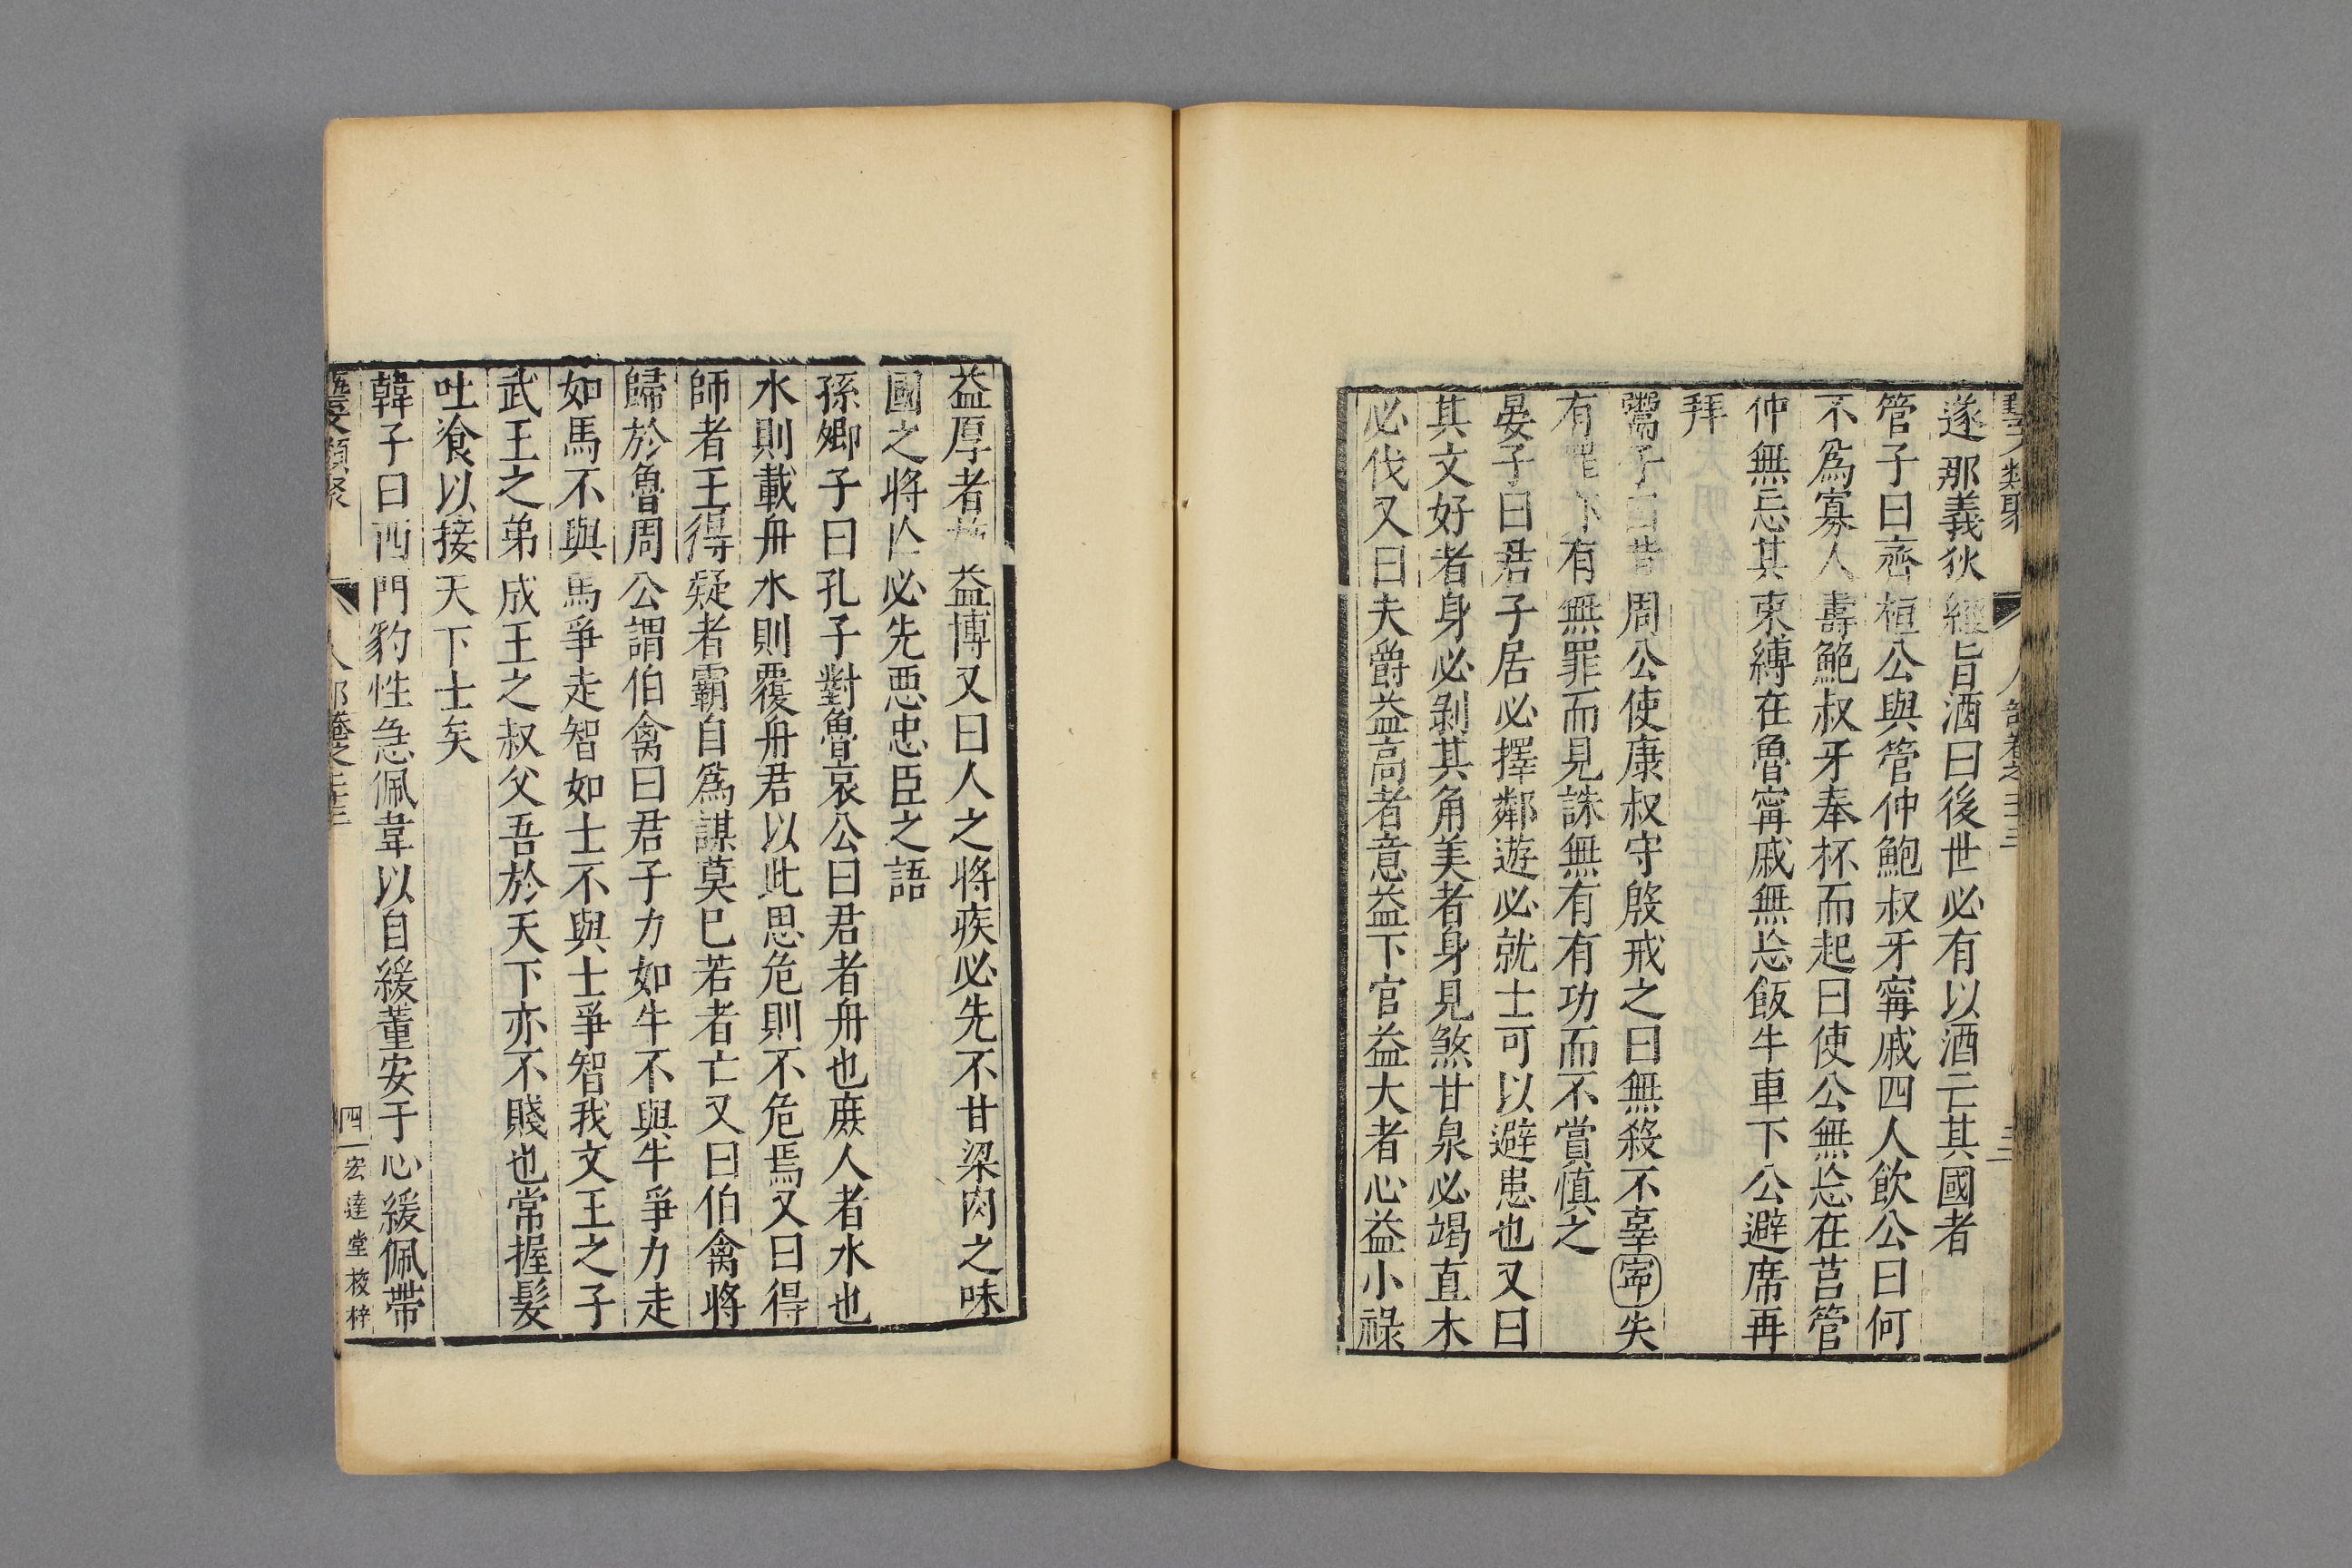 遂那義狄經旨酒曰後世必有以酒亡其國者
管子曰齊桓公與管仲鮑叔牙甯戚四人飲公曰何
不爲寡人壽鮑叔牙奉杯而起曰使公無忘在莒管
仲無忘其束縛在魯甯戚無忘飯牛車下公避席再
拜
鬻子曰昔周公使康叔守殷戒之曰無殺不辜寧失
有罪下有無罪而見誅無有有功而不賞慎之
晏子曰君子居必擇鄰遊必就士可以避患也又曰
其文好者身必剝其角美者身見煞甘泉必竭直木
必伐又曰夫爵益高者意益下官益大者心益小祿
益厚者益博又曰人之將疾必先不甘梁肉之味
國之將亾必先惡忠臣之語
孫卿子曰孔子對魯哀公曰君者舟也庶人者水也
水則載舟水則覆舟君以此思危則不危焉又曰得
師者王得疑者霸自爲謀莫巳若者亡又曰伯禽將
歸於魯周公謂伯禽曰君子力如牛不與牛爭力走
如馬不與馬爭走智如士不與士爭智我文王之子
武王之弟成王之叔父吾於天下亦不賤也常握髮
吐飡以接天下士矣
韓子曰西門豹性急佩韋以自緩董安于心緩佩帶
藝文類聚 人部卷之二十三 四 宏達堂校梓